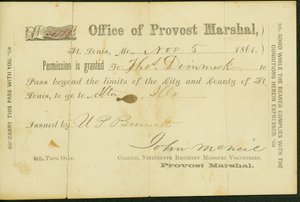 Office of Provost Marshal,
St. Louis, Mo., Nov 5 1861.
Permission is granted To Thos. Dimmock to
Pass beyond the limits of the City and County of St.
Louis, to go to Alton Ills
Issued by U P Bennett
John McNeil
COLONEL NINETEENTH REGIMENT MISSOURI VOLUNTEERS,
Provost Marshal.
Turn Over.
CARRY THIS PASS WITH YOU.
GOOD WHILE THE BEARER COMPLIES WITH THE
CONDITIONS HEREIN EXPRESSED.